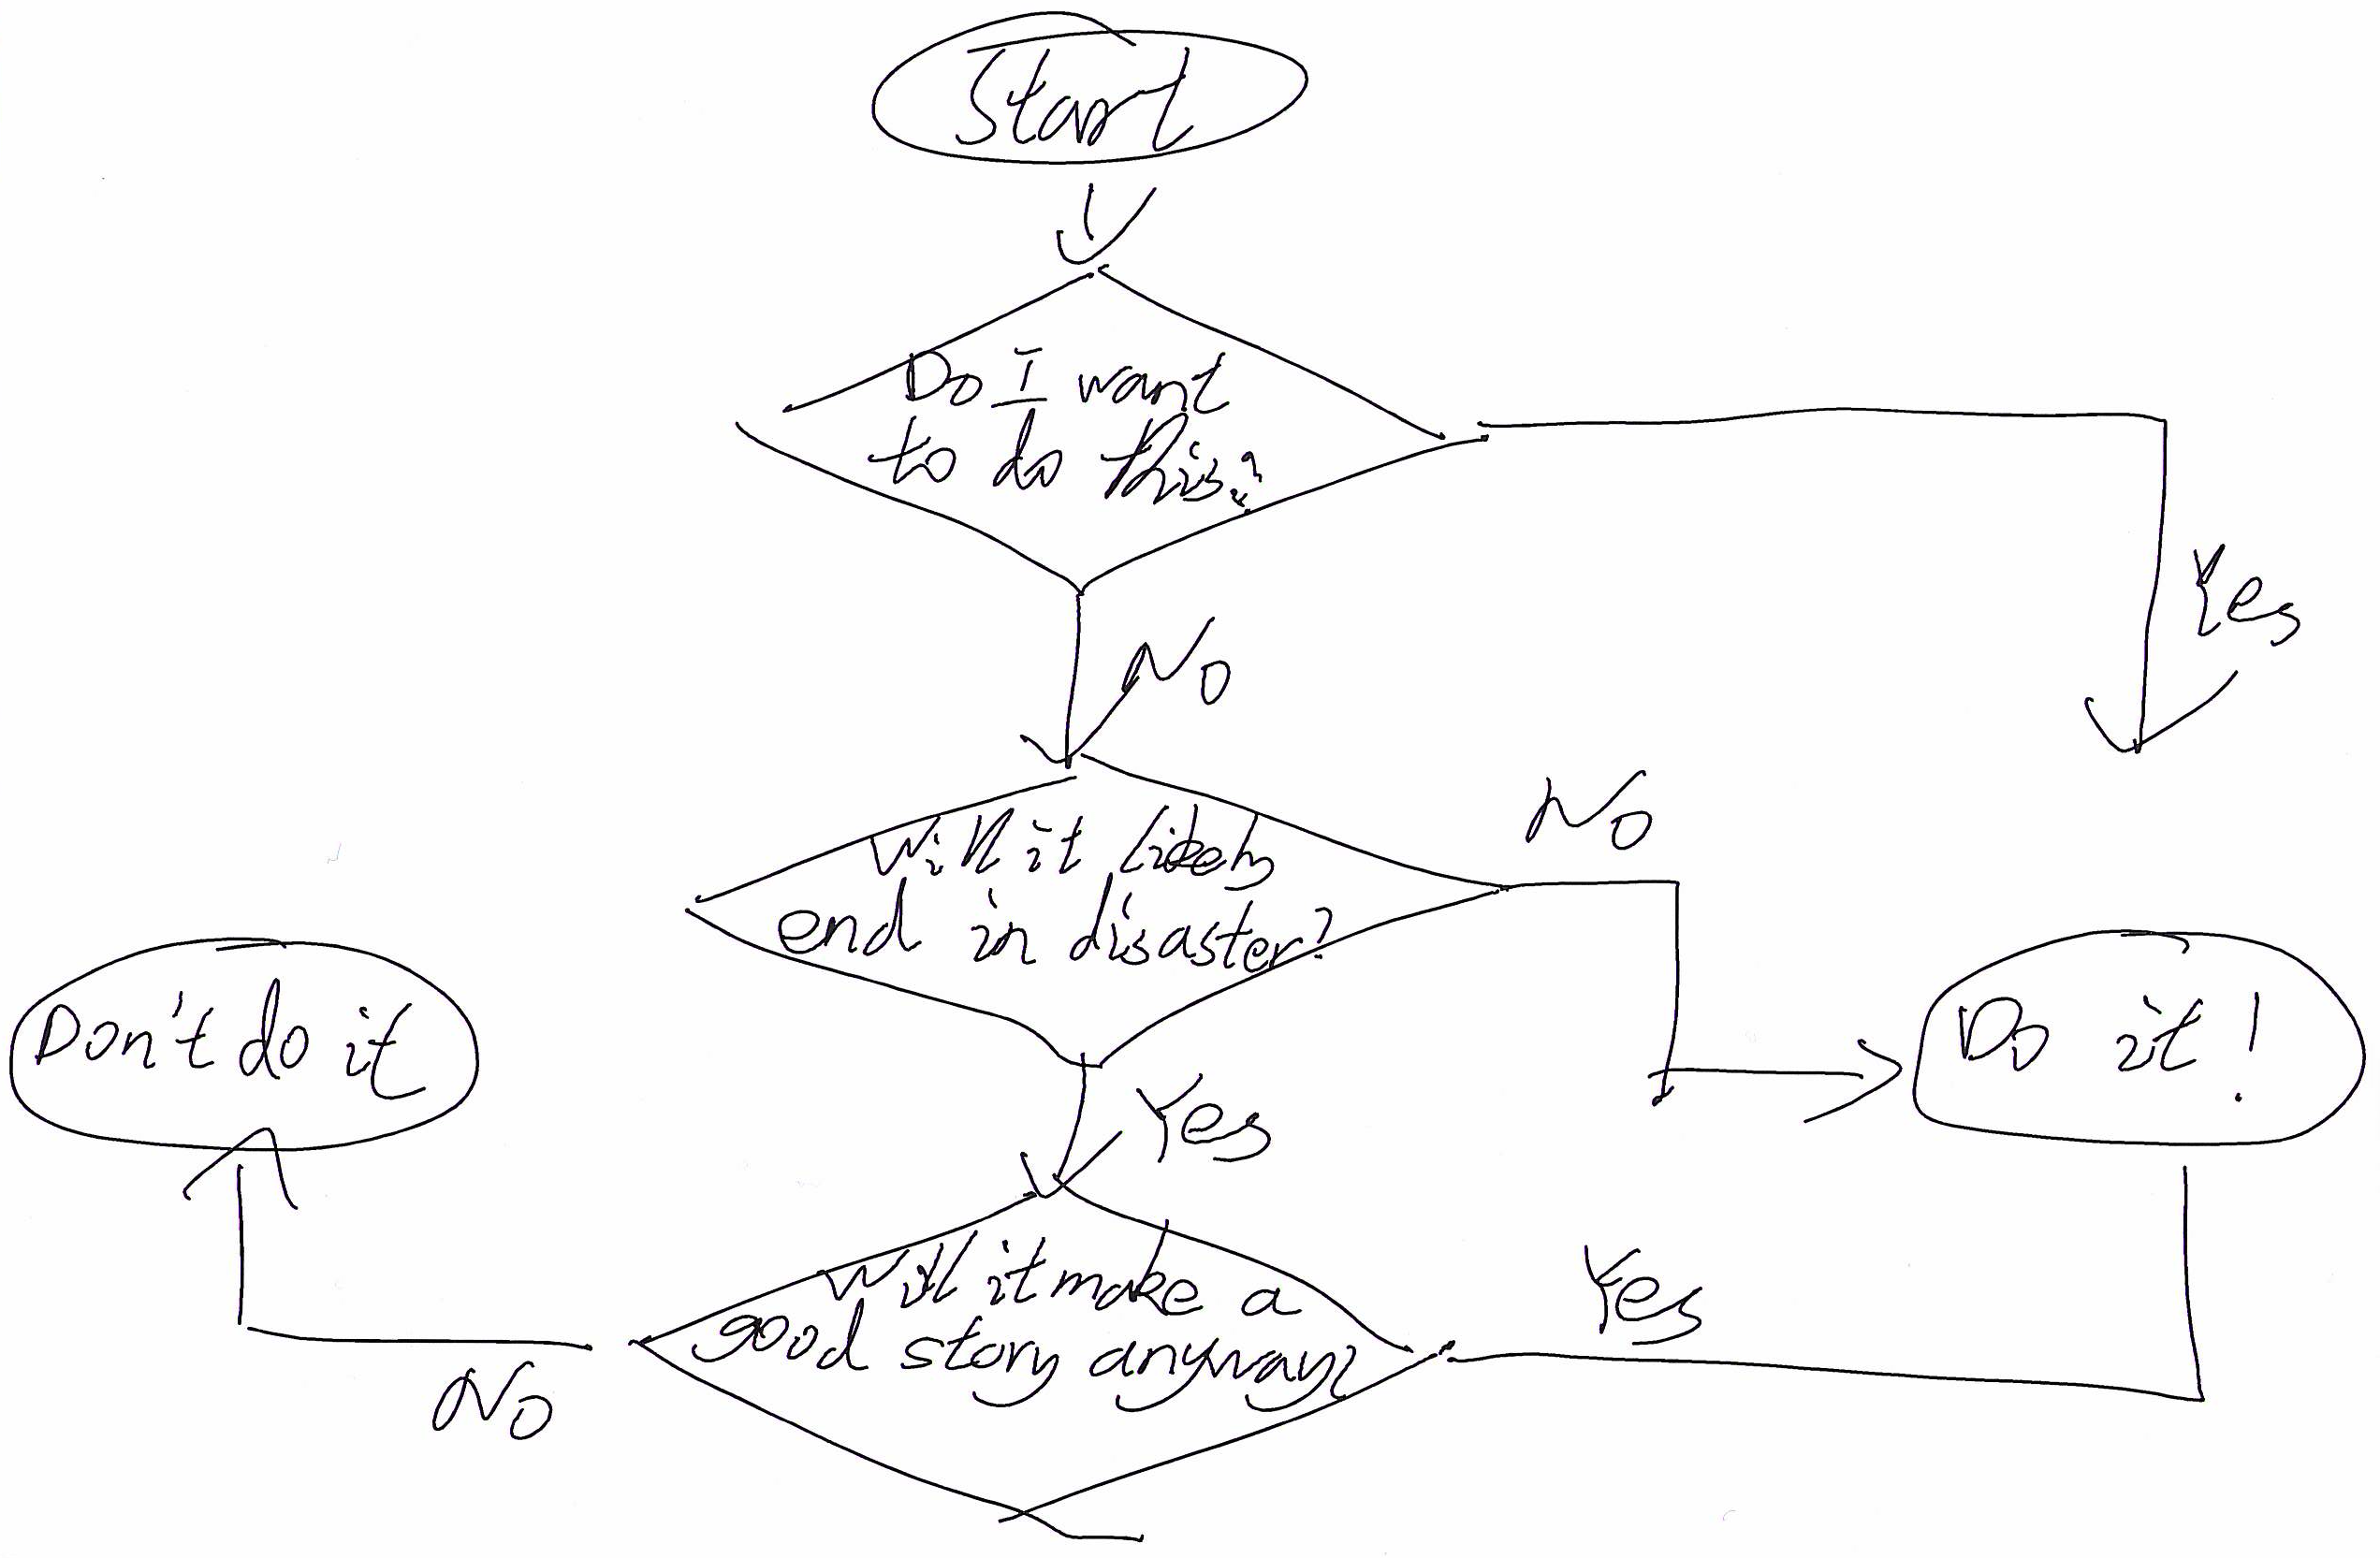 Start
Do I want
to do this?
Yes
No
Will it likely
end in disaster?
No
Don't do it
Do it!
Yes
Will it make a
good story anyway
Yes
No